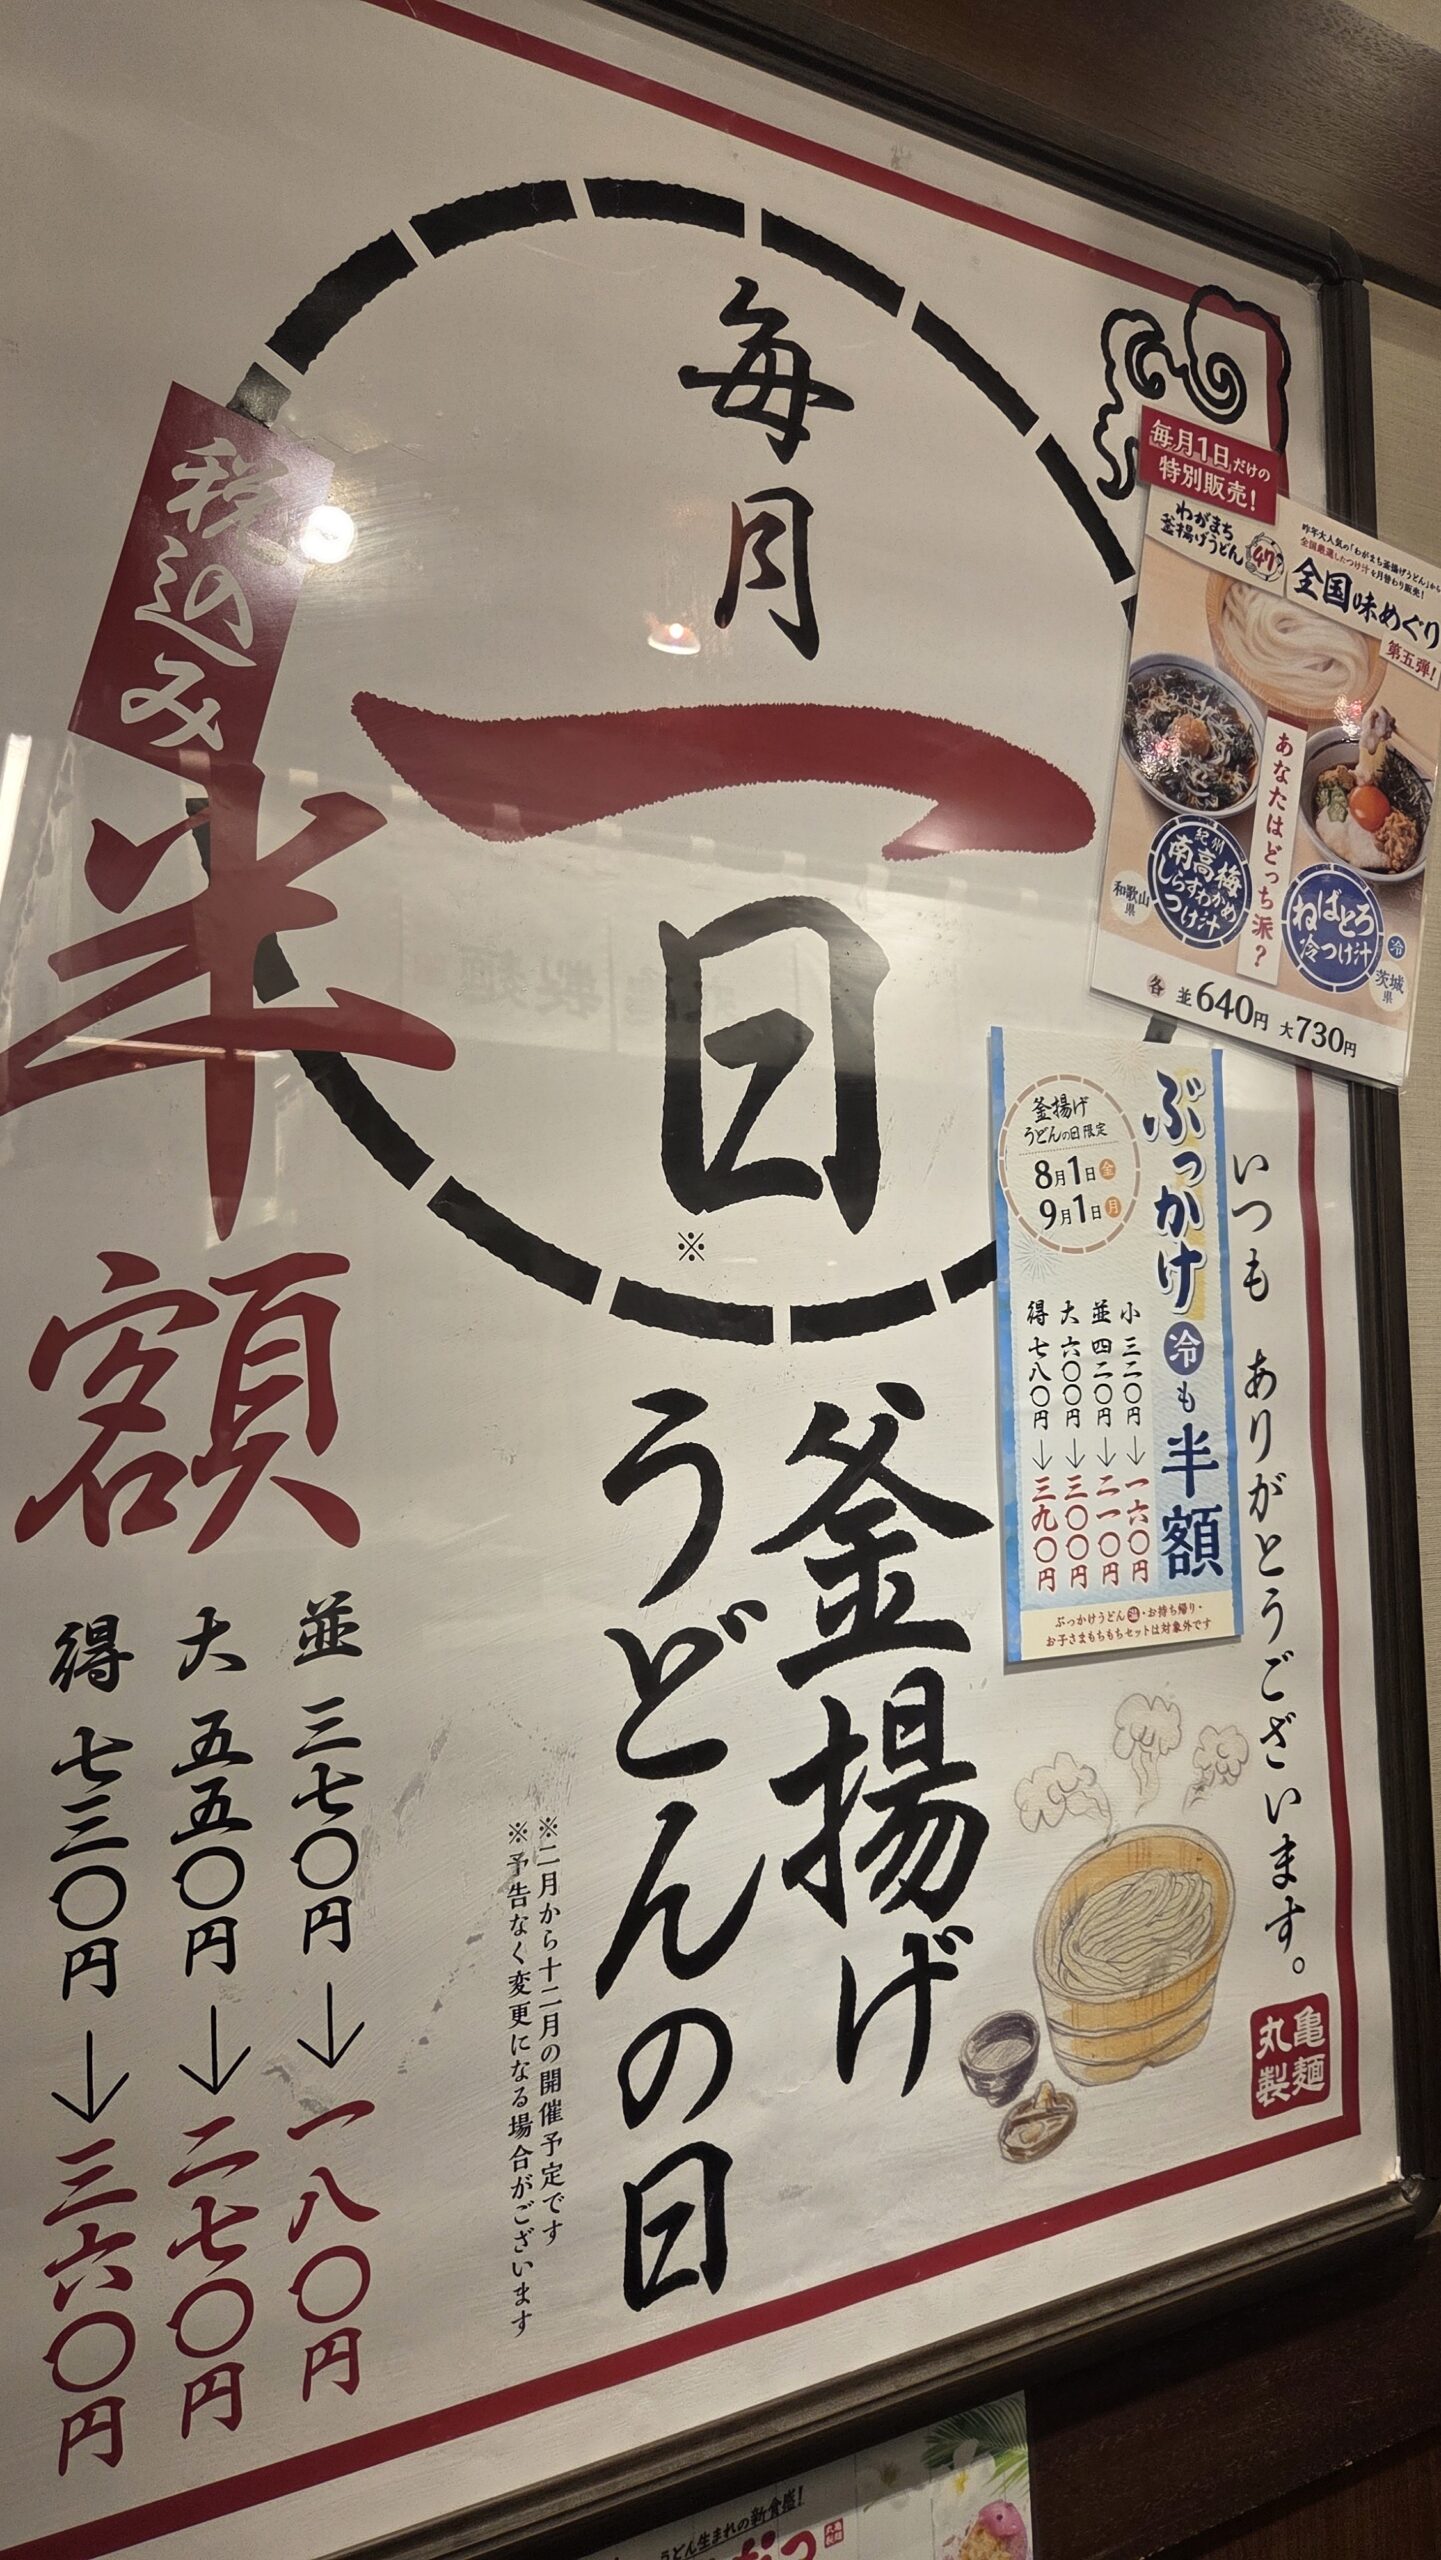 いつも ありがとうございます。
丸亀製麺
毎月
一日
※
釜揚げ
うどんの日
※二月から十二月の開催予定です
※予告なく変更になる場合がございます
税込み
半額
並 三七〇円→一八〇円
大 五五〇円→二七〇円
得 七三〇円→三六〇円
毎月1日だけの
特別販売!
わがまち
釜揚げうどん
47
昨年大人気の「わがまち釜揚げうどん」から
全国厳選したつけ汁を月替わり販売!
全国味めぐり
第五弾!
あなたはどっち派?
紀州
南高梅
しらすわかめ
つけ汁
和歌山
県
ねばとろ
冷つけ汁
冷
茨城
県
各 並640円 大730円
ぶっかけ冷も半額
釜揚げ
うどんの日限定
8月1日金
9月1日月
小 三二〇円→一六〇円
並 四二〇円→二一〇円
大 六〇〇円→三〇〇円
得 七八〇円→三九〇円
ぶっかけうどん温・お持ち帰り・
お子さまもちもちセットは対象外です
うどん生まれの新食感!
丸亀
製麺